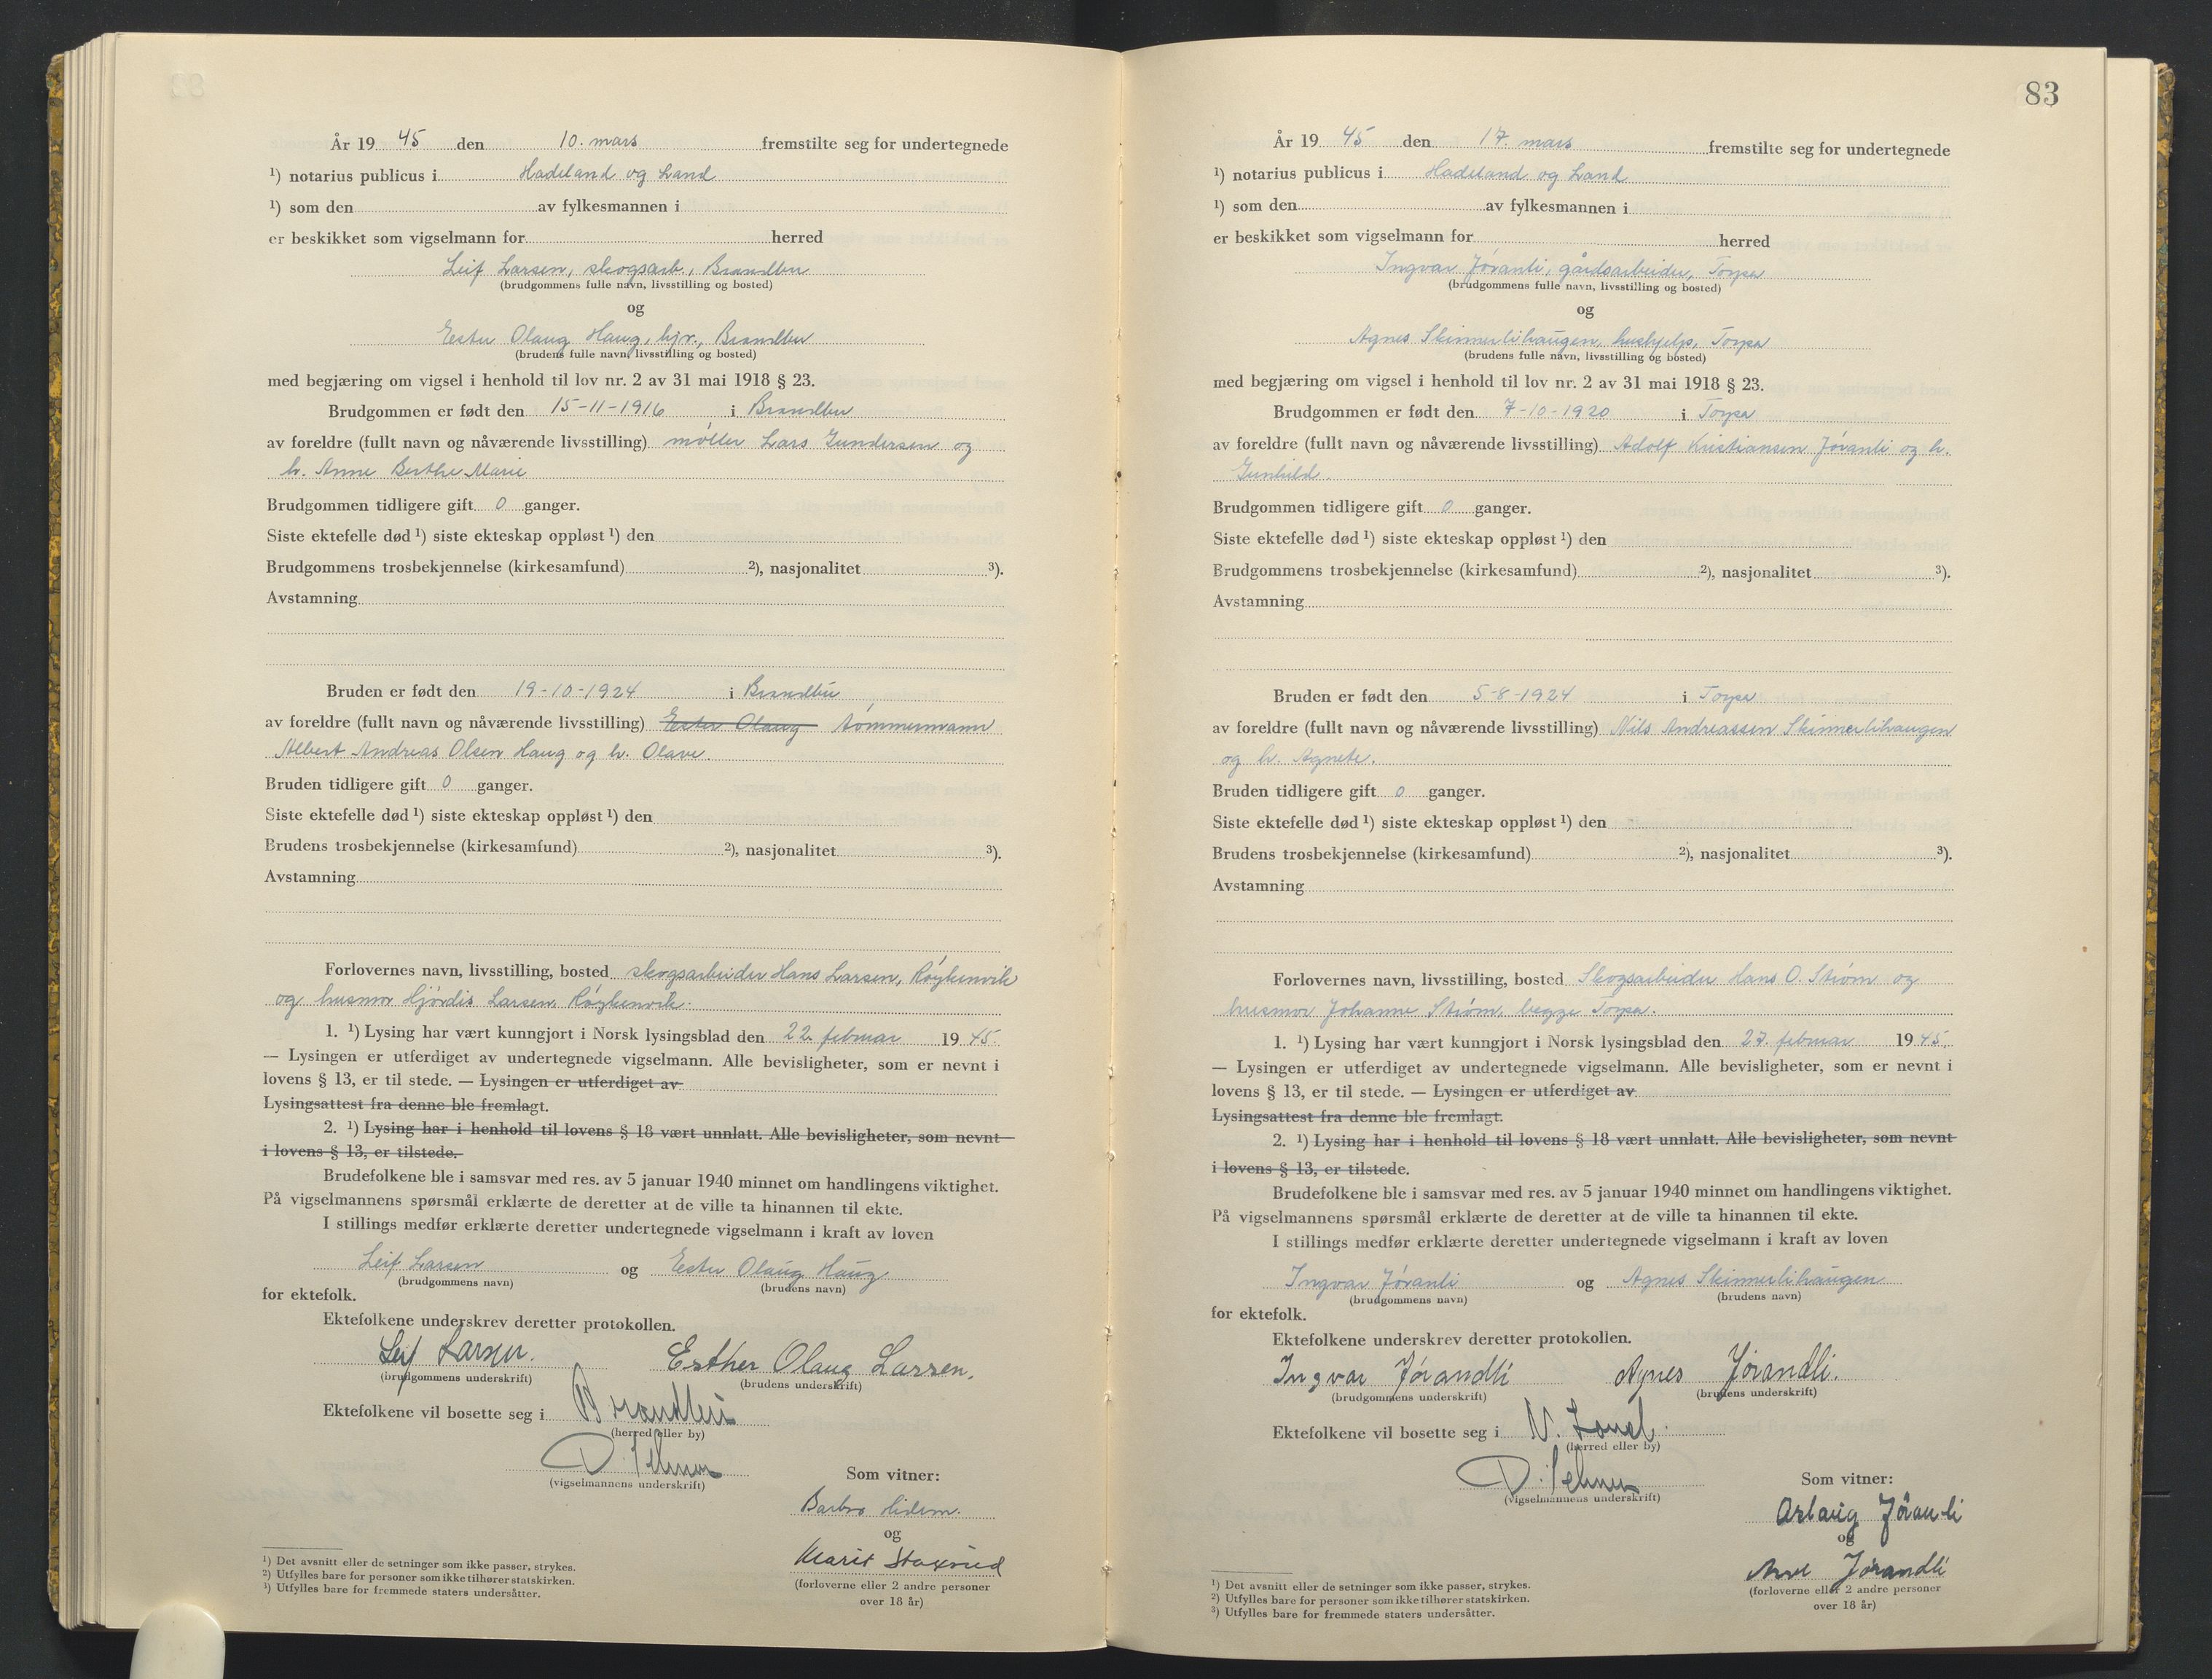 År 19 45 den 10. mars fremstilte seg for undertegnede
¹) notarius publicus i Hadeland og Land
¹) som den av fylkesmannen i
er beskikket som vigselmann for herred
Leif Larsen, skogsarb., Brandbu
(brudgommens fulle navn, livsstilling og bosted)
og
Ester Olaug Haug, hjv., Brandbu
(brudens fulle navn, livsstilling og bosted)
med begjæring om vigsel i henhold til lov nr. 2 av 31 mai 1918 § 23.
Brudgommen er født den 15-11-1916 i Brandbu
av foreldre (fullt navn og nåværende livsstilling) møller Lars Gundersen og
h. Anne Berthe Marie
Brudgommen tidligere gift 0 ganger.
Siste ektefelle død ¹) siste ekteskap oppløst ¹) den
Brudgommens trosbekjennelse (kirkesamfund) ²), nasjonalitet ³).
Avstamning
Bruden er født den 19-10-1924 i Brandbu
av foreldre (fullt navn og nåværende livsstilling) Ester Olaug tømmermann
Albert Andreas Olsen Haug og h. Olave.
Bruden tidligere gift 0 ganger.
Siste ektefelle død ¹) siste ekteskap oppløst ¹) den
Brudens trosbekjennelse (kirkesamfund) ²), nasjonalitet ³).
Avstamning
Forlovernes navn, livsstilling, bosted skogsarbeider Hans Larsen, Røykenvik
og husmor Hjördis Larsen, Røykenvik.
1. ¹) Lysing har vært kunngjort i Norsk lysingsblad den 22. februar 19 45.
— Lysingen er utferdiget av undertegnede vigselmann. Alle bevisligheter, som er nevnt i
lovens § 13, er til stede. — Lysingen er utferdiget av
Lysingsattest fra denne ble fremlagt.
2. ¹) Lysing har i henhold til lovens § 18 vært unnlatt. Alle bevisligheter, som nevnt
i lovens § 13, er tilstede.
Brudefolkene ble i samsvar med res. av 5 januar 1940 minnet om handlingens viktighet.
På vigselmannens spørsmål erklærte de deretter at de ville ta hinannen til ekte.
I stillings medfør erklærte deretter undertegnede vigselmann i kraft av loven
Leif Larsen og Ester Olaug Haug
(brudgommens navn) (brudens navn)
for ektefolk.
Ektefolkene underskrev deretter protokollen.
Leif Larsen. Esther Olaug Larsen.
(brudgommens underskrift) (brudens underskrift)
Ektefolkene vil bosette seg i Brandbu
(herred eller by)
(vigselmannens underskrift)
Som vitner:
Barbro Hidem.
og
Marit Staxrud
(forloverne eller 2 andre personer
over 18 år)
¹) Det avsnitt eller de setninger som ikke passer, strykes.
²) Utfylles bare for personer som ikke tilhører statskirken.
³) Utfylles bare for fremmede staters undersåtter.
83
År 19 45 den 17. mars fremstilte seg for undertegnede
¹) notarius publicus i Hadeland og Land
¹) som den av fylkesmannen i
er beskikket som vigselmann for herred
Ingvar Jøranli, gårdsarbeider, Torpa
(brudgommens fulle navn, livsstilling og bosted)
og
Agnes Skinnerlihaugen, hushjelp, Torpa
(brudens fulle navn, livsstilling og bosted)
med begjæring om vigsel i henhold til lov nr. 2 av 31 mai 1918 § 23.
Brudgommen er født den 7-10-1920 i Torpa
av foreldre (fullt navn og nåværende livsstilling) Adolf Kristiansen Jøranli og h.
Gunhild.
Brudgommen tidligere gift 0 ganger.
Siste ektefelle død ¹) siste ekteskap oppløst ¹) den
Brudgommens trosbekjennelse (kirkesamfund) ²), nasjonalitet ³).
Avstamning
Bruden er født den 5-8-1924 i Torpa
av foreldre (fullt navn og nåværende livsstilling) Nils Andreassen Skinnerlihaugen
og h. Agnete.
Bruden tidligere gift 0 ganger.
Siste ektefelle død ¹) siste ekteskap oppløst ¹) den
Brudens trosbekjennelse (kirkesamfund) ²), nasjonalitet ³).
Avstamning
Forlovernes navn, livsstilling, bosted Skogsarbeider Hans O. Strøm og
husmor Johanne Strøm, begge Torpa.
1. ¹) Lysing har vært kunngjort i Norsk lysingsblad den 27. februar 19 45.
— Lysingen er utferdiget av undertegnede vigselmann. Alle bevisligheter, som er nevnt i
lovens § 13, er til stede. — Lysingen er utferdiget av
Lysingsattest fra denne ble fremlagt.
2. ¹) Lysing har i henhold til lovens § 18 vært unnlatt. Alle bevisligheter, som nevnt
i lovens § 13, er tilstede.
Brudefolkene ble i samsvar med res. av 5 januar 1940 minnet om handlingens viktighet.
På vigselmannens spørsmål erklærte de deretter at de ville ta hinannen til ekte.
I stillings medfør erklærte deretter undertegnede vigselmann i kraft av loven
Ingvar Jøranli og Agnes Skinnerlihaugen
(brudgommens navn) (brudens navn)
for ektefolk.
Ektefolkene underskrev deretter protokollen.
Ingvar Jørandli Agnes Jørandli.
(brudgommens underskrift) (brudens underskrift)
Ektefolkene vil bosette seg i N. Land.
(herred eller by)
(vigselmannens underskrift)
Som vitner:
Arlaug Jøranli
og
Jørandli
(forloverne eller 2 andre personer
over 18 år)
¹) Det avsnitt eller de setninger som ikke passer, strykes.
²) Utfylles bare for personer som ikke tilhører statskirken.
³) Utfylles bare for fremmede staters undersåtter.